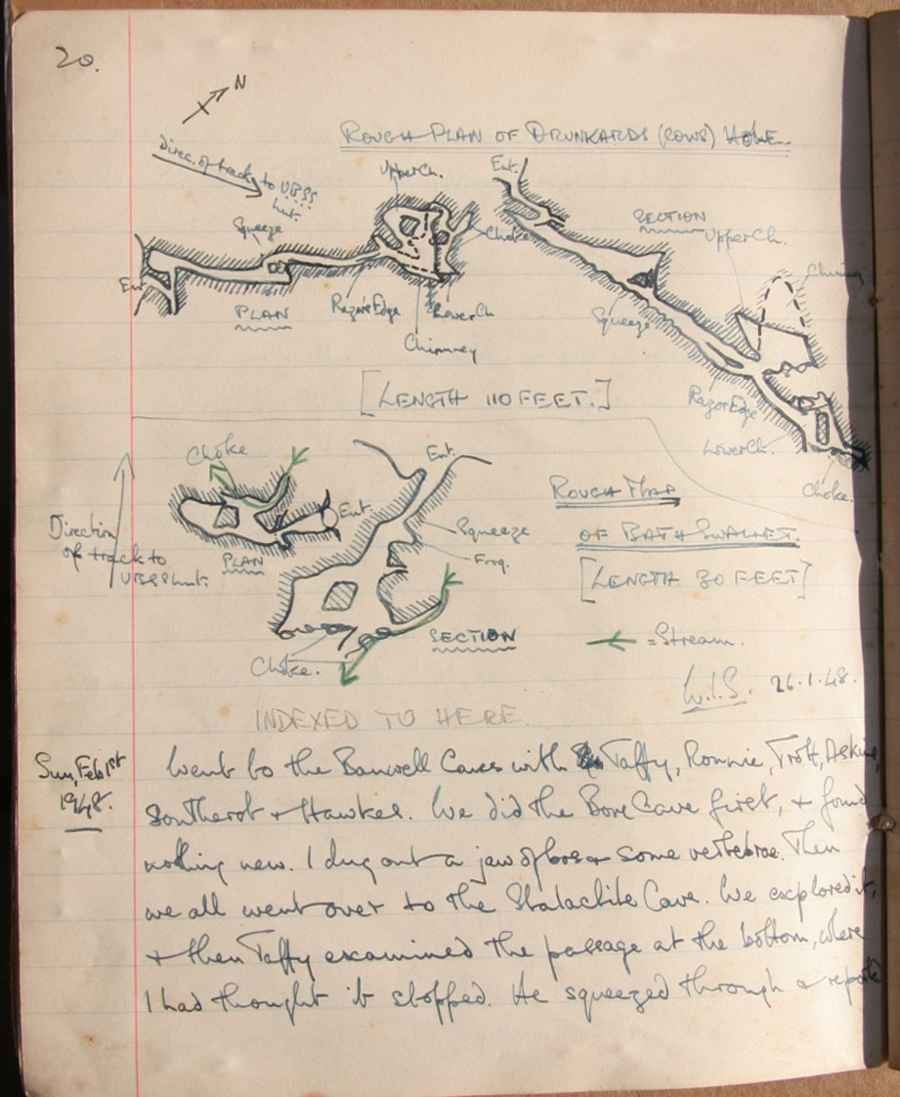 20.
N
ROUGH PLAN OF DRUNKARDS (ROWS) HOLE.
Direc. of track to UBSS hut.
Upper Ch.
Squeeze
Choke
Ent
PLAN
Razor Edge
Lower Ch
Chimney
Ent.
SECTION
Upper Ch.
Squeeze
Razor Edge
Lower Ch.
Choke.
[LENGTH 110 FEET.]
Choke
Ent.
Direction of track to UBSS hut.
PLAN
Ent.
Squeeze
SECTION
Choke.
ROUGH MAP
OF BATH SWALLET.
[LENGTH 80 FEET]
= Stream.
W.I.S. 26.1.48.
INDEXED TO HERE.
Sun, Feb 1st
1948.
Went to the Banwell Caves with Taffy, Ronnie, Trott,
+ Hawkes. We did the Bone Cave first, + found
nothing new. I dug out a jaw of + some vertebrae. Then
we all went over to the Stalactite Cave. We explored it,
+ then Taffy examined the passage at the bottom, where
I had thought it stopped. He squeezed through + reported